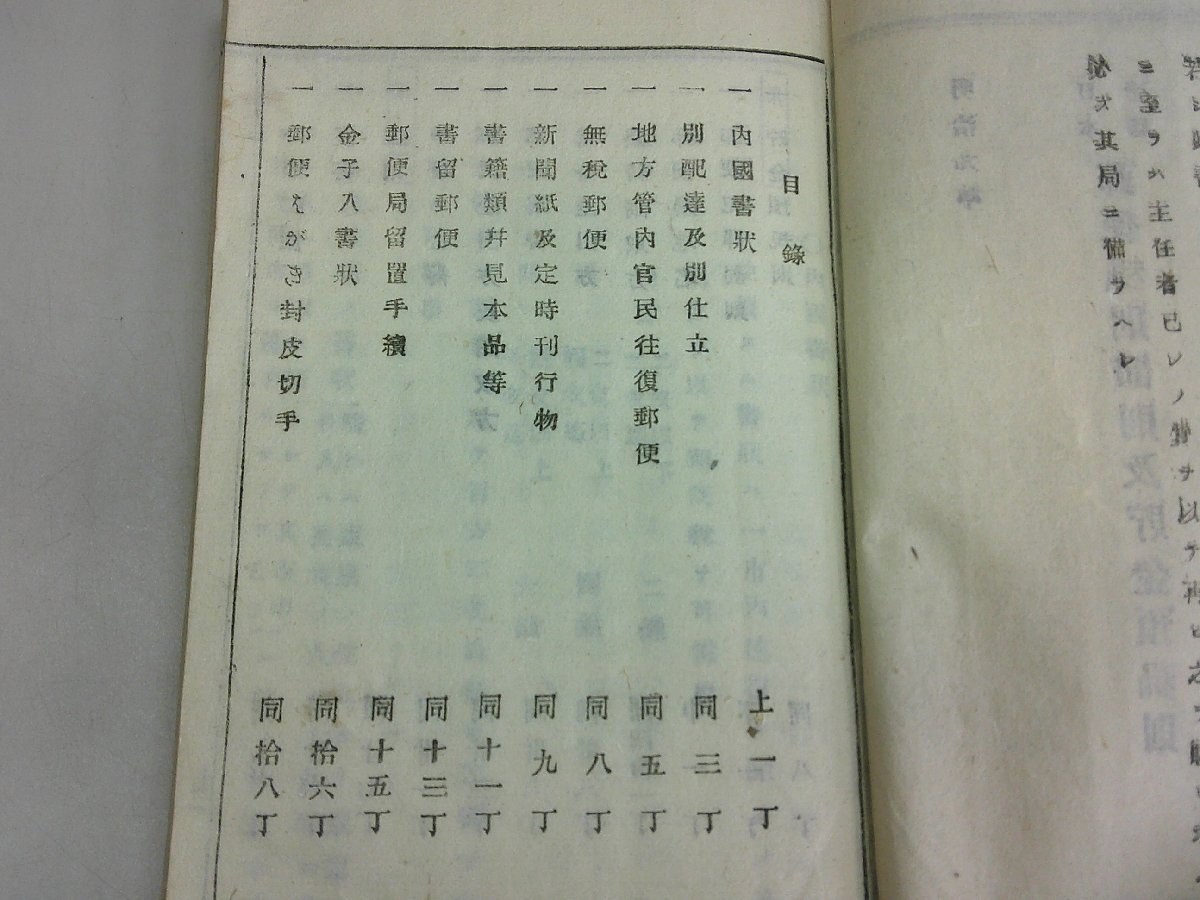 ニ至ラハ主任者已レノ
必ス其局ニ備ヲヘレ
目錄
一 內國書狀 上一丁
一 別配達及別仕立 同三丁
一 地方管內官民往復郵便 同五丁
一 無稅郵便 同八丁
一 新聞紙及定時刊行物 同九丁
一 書籍類幷見本品等 同十一丁
一 書留郵便 同十三丁
一 郵便局留置手續 同十五丁
一 金子入書狀 同拾六丁
一 郵便はがき封皮切手 同拾八丁